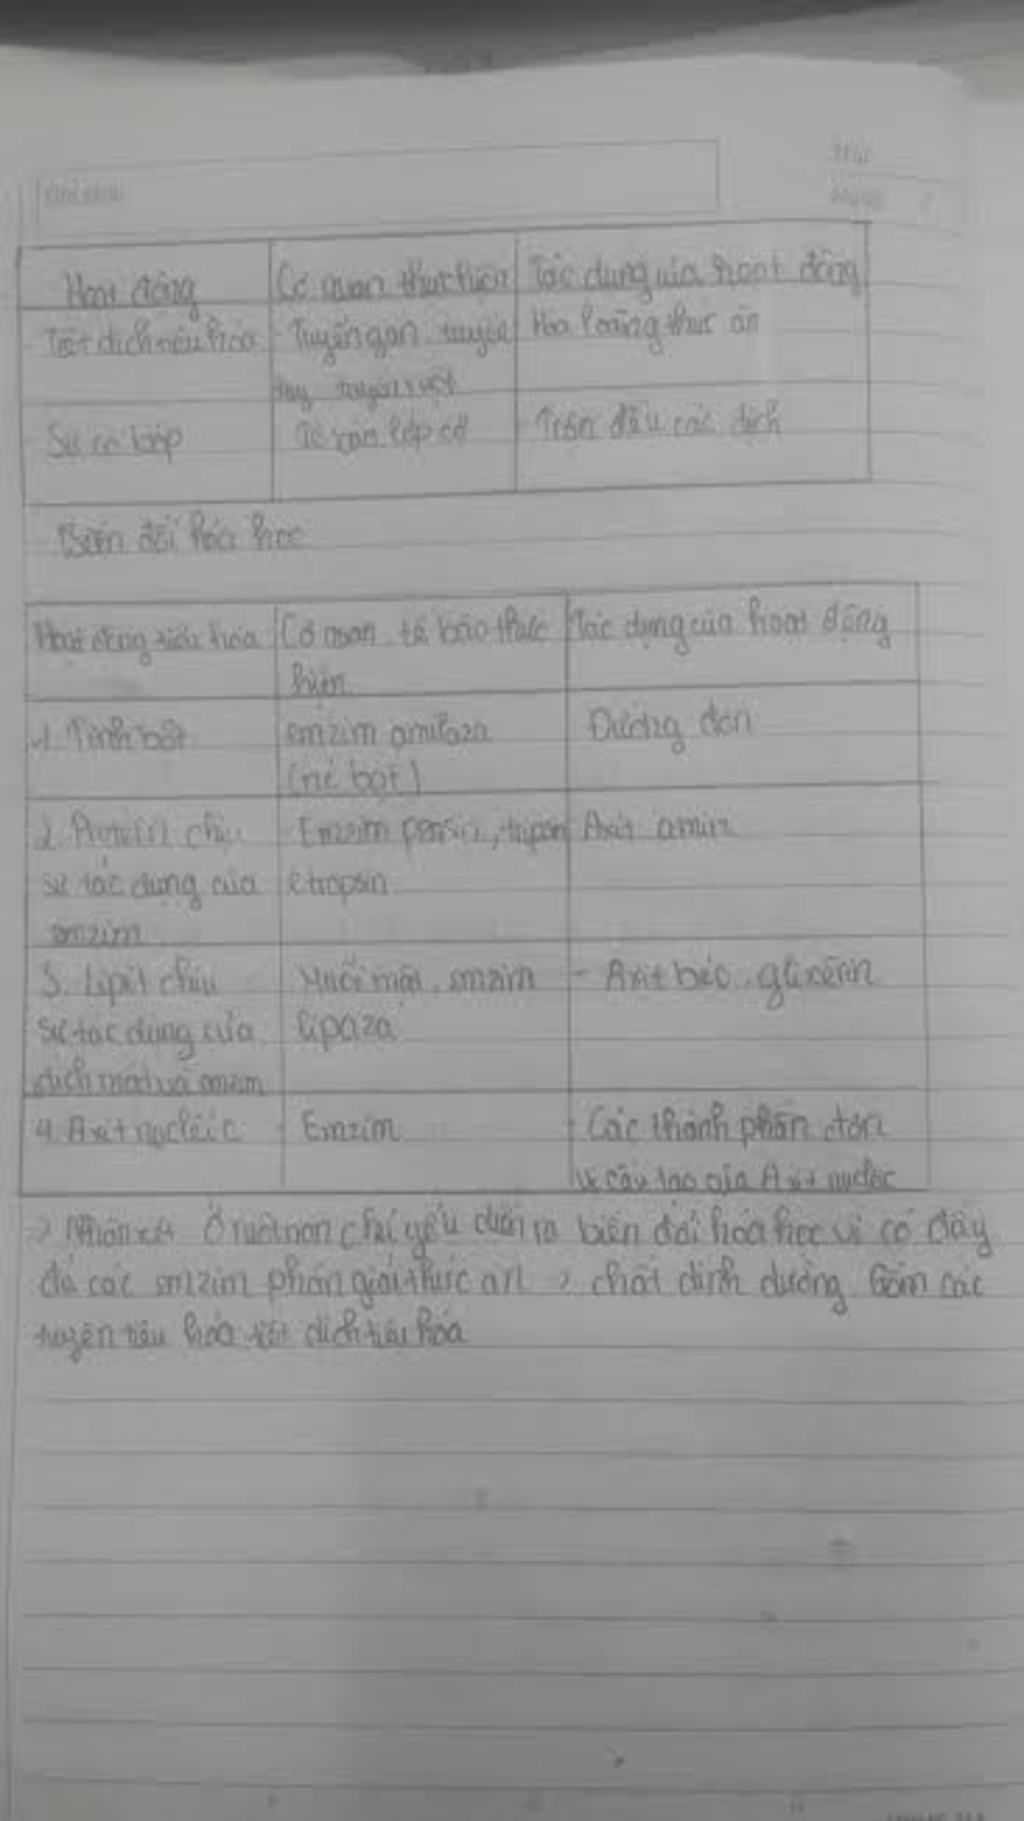 Hoạt động | Cơ quan thực hiện | Tác dụng của hoạt động
Tiết dịch tiêu hóa | Tuyến gan, tuyến | Hòa loãng thức ăn
tụy, tuyến ruột
Sự co bóp | lớp cơ | Trộn đều các dịch
Biến đổi hóa học
Hoạt động tiêu hóa | Cơ quan, tế bào thực | Tác dụng của hoạt động
hiện
1. Tinh bột | emzim amilaza | Đường đơn
2. Protein chịu | Emzim pepsin, | Axit amin
sự tác dụng của | etropsin
emzim
3. Lipit chịu | Muối mật, emzim | - Axit béo, glixêrin
sự tác dụng của | lipaza
dịch mật và emzim
4. Axit nuclêic | Emzim | Các thành phần đơn
vị cấu tạo của Axit nuclêic
-> Nhận xét Ở ruột non chủ yếu diễn ra biến đổi hóa học vì có đầy
đủ các emzim phân giải thức ăn > chất dinh dưỡng Gồm các
tuyến tiêu hóa tiết dịch tiêu hóa